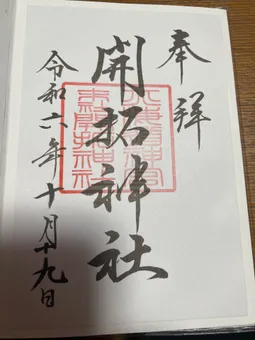 奉拝
開拓神社
令和六年十月十九日
北海道神宮
末社開拓神社